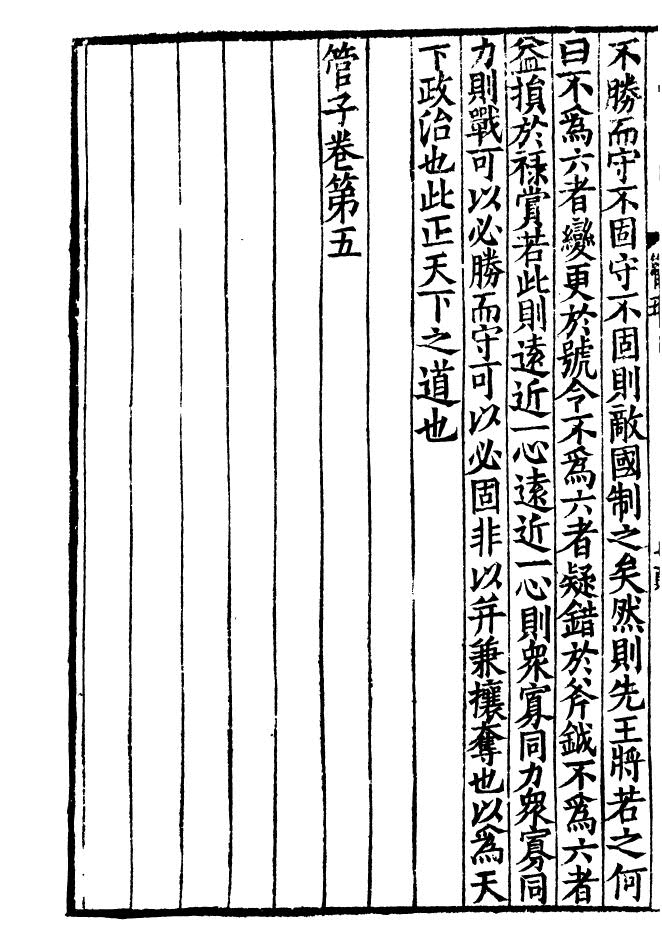 不勝而守不固守不固則敵國制之矣然則先王將若之何
曰不爲六者變更於號令不爲六者疑錯於斧鉞不爲六者
益損於祿賞若此則遠近一心遠近一心則衆寡同力衆寡同
力則戰可以必勝而守可以必固非以幷兼攘奪也以爲天
下政治也此正天下之道也
管子卷第五